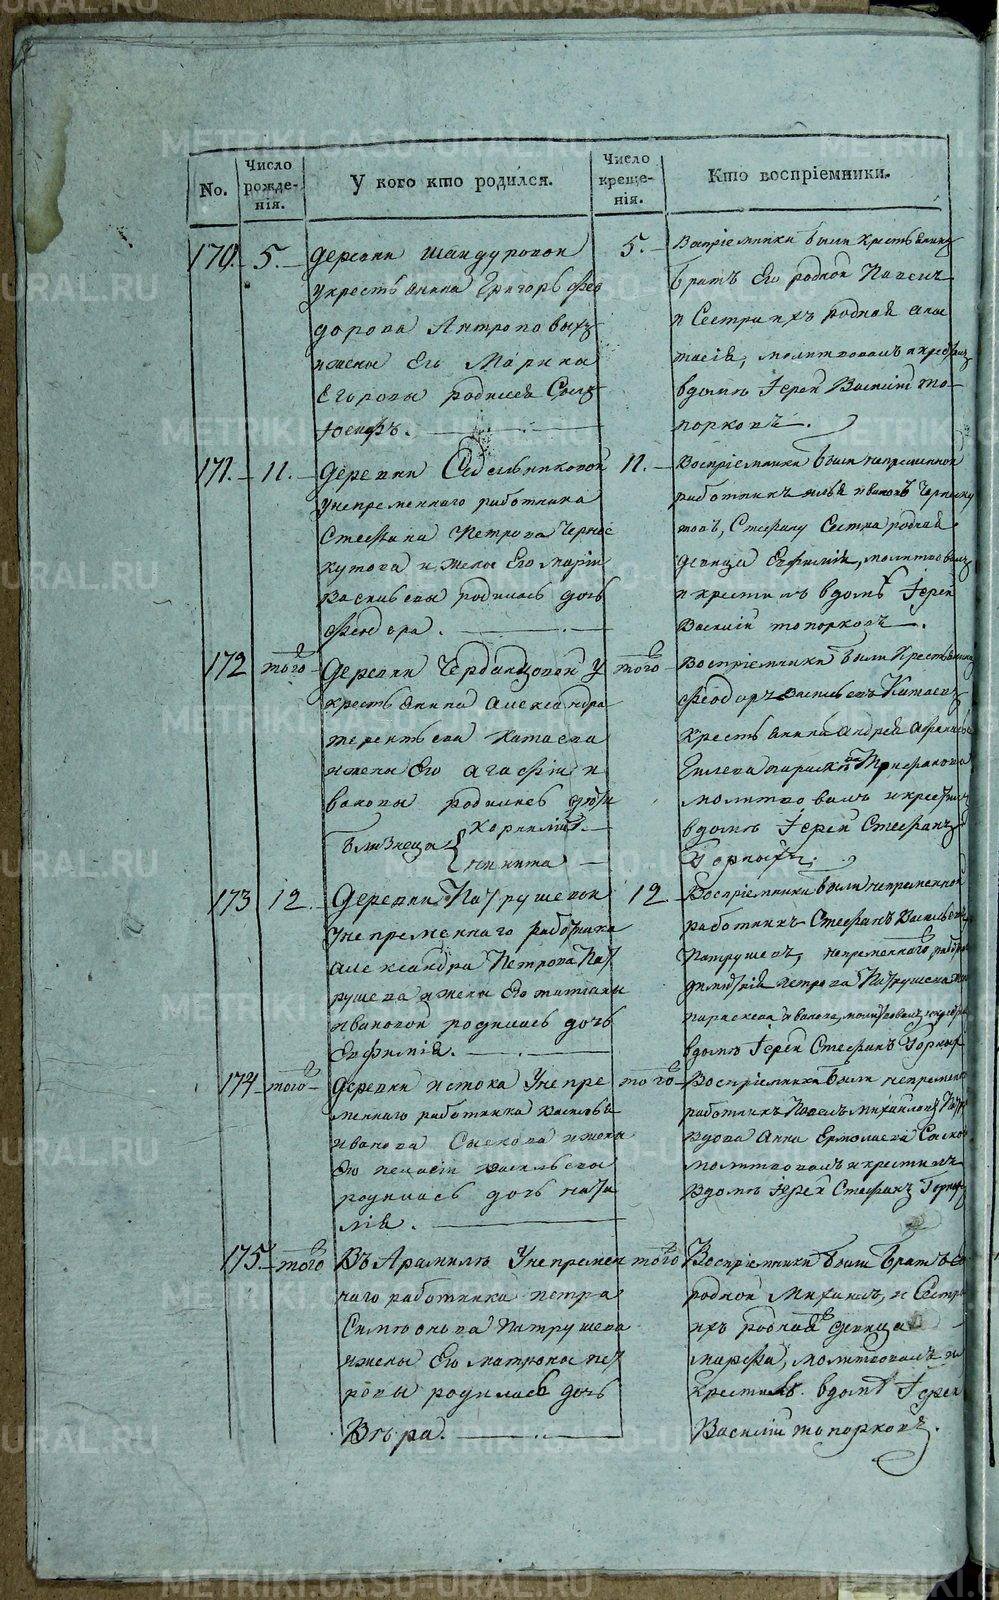 No.
Число рожде-нія.
У кого кто родился.
Число креще-нія.
Кто воспріемники.
170. 5.
деревни Шандуровой
у крестьянина Григорья Фео
дорова Антроповыхъ
и жены Его Марины
Егоровы родился Сынъ
Іосифъ.
5.
Воспріемники были крестьянинъ
братъ Его родной
и Сестра ихъ родная Анас
тасія, молитвовалъ и крестилъ
в домѣ Іерей Василій То-
порковъ.
171. 11.
деревни
у непременнаго работника
Стефана Петрова Чернос
кутова и жены Его Маріи
Васильевы родилась дочь
Феодора.
11.
Воспріемники были непременной
работникъ Илья Ивановъ Черноску
товъ, Стефану Сестра родная
девица Евфимія, молитвовалъ
и крестилъ в домѣ Іерей
Василій Топорковъ.
172 того
деревни Чердынцовой у
крестьянина Александра
Терентьева Катаева
и жены Его Агафіи И
вановы родились дѣти
близнеца Корнилій
Никита
того
Воспріемники были крестьянинъ
Феодоръ Васильевъ Катаевъ
крестьянина Андрея
молитвовалъ и крестилъ
в домѣ Іерей Стефанъ
Горныхъ.
173 12.
деревни Патрушевой
у непременнаго работника
Александра Петрова Пат
рушева и жены Его Татианы
Ивановой родилась дочь
Евфимія.
12.
Воспріемники были непременной
работникъ Стефанъ Васильевъ
Патрушевъ, непременнаго работ
Димитрія Петрова Патрушева жена
Параскева Иванова, молитвовалъ и крестил
в домѣ Іерей Стефанъ Горныхъ
174 того
деревни Истока У непре
меннаго работника Василья
Иванова Сыскова и жены
Его Пелагіи Васильевы
родилась дочь Ната
лія.
того
Воспріемники были непременной
работникъ Павелъ Михайловъ
вдова Анна Ермолаева
молитвовалъ и крестилъ
в домѣ Іерей Стефанъ Горныхъ
175 того
Въ Арамилѣ У непремен
наго работника Петра
Симеонова Патрушева
и жены Его Матроны Пет
ровы родилась дочь
Вѣра.
того
Воспріемники были братъ Ево
родной Михаилъ, и Сестра
ихъ родная девица
Марѳа, молитвовалъ и
крестилъ в домѣ Іерей
Василій Топорковъ.
METRIKI.GASO-URAL.RU